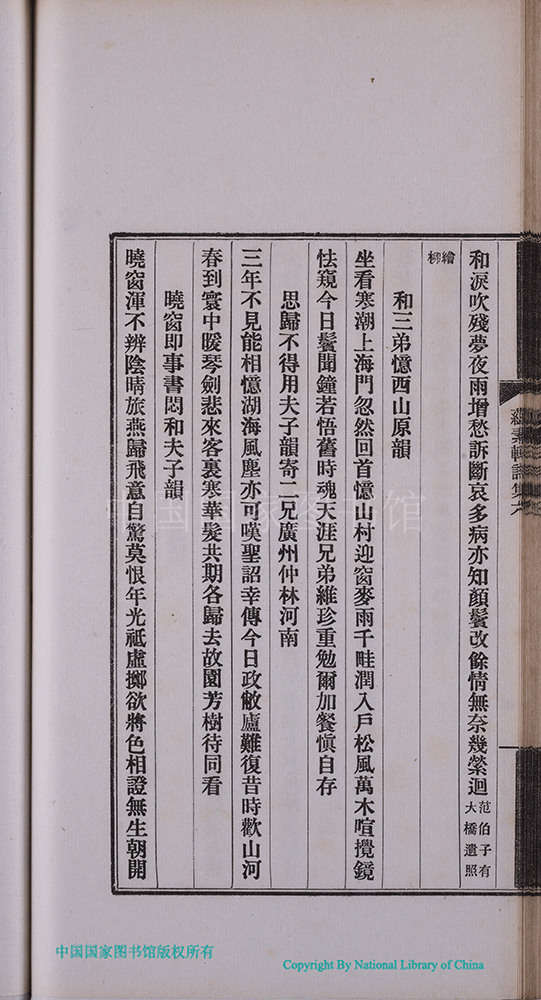 蘊素軒詩集六
和淚吹殘夢夜雨增愁訴斷哀多病亦知顏鬢改餘情無奈幾縈迴范伯子有大橋遺照
繪柳
和三弟憶西山原韻
坐看寒潮上海門忽然回首憶山村迎窗麥雨千畦潤入戶松風萬木喧攬鏡
怯窺今日鬢聞鐘若悟舊時魂天涯兄弟維珍重勉爾加餐愼自存
思歸不得用夫子韻寄二兄廣州仲林河南
三年不見能相憶湖海風塵亦可嘆聖詔幸傳今日政敝廬難復昔時歡山河
春到寰中暖琴劍悲來客裏寒華髮共期各歸去故園芳樹待同看
曉窗即事書悶和夫子韻
曉窗渾不辨陰晴旅燕歸飛意自驚莫恨年光祗虛擲欲將色相證無生朝開
中国国家图书馆
中国国家图书馆版权所有
Copyright By National Library of China